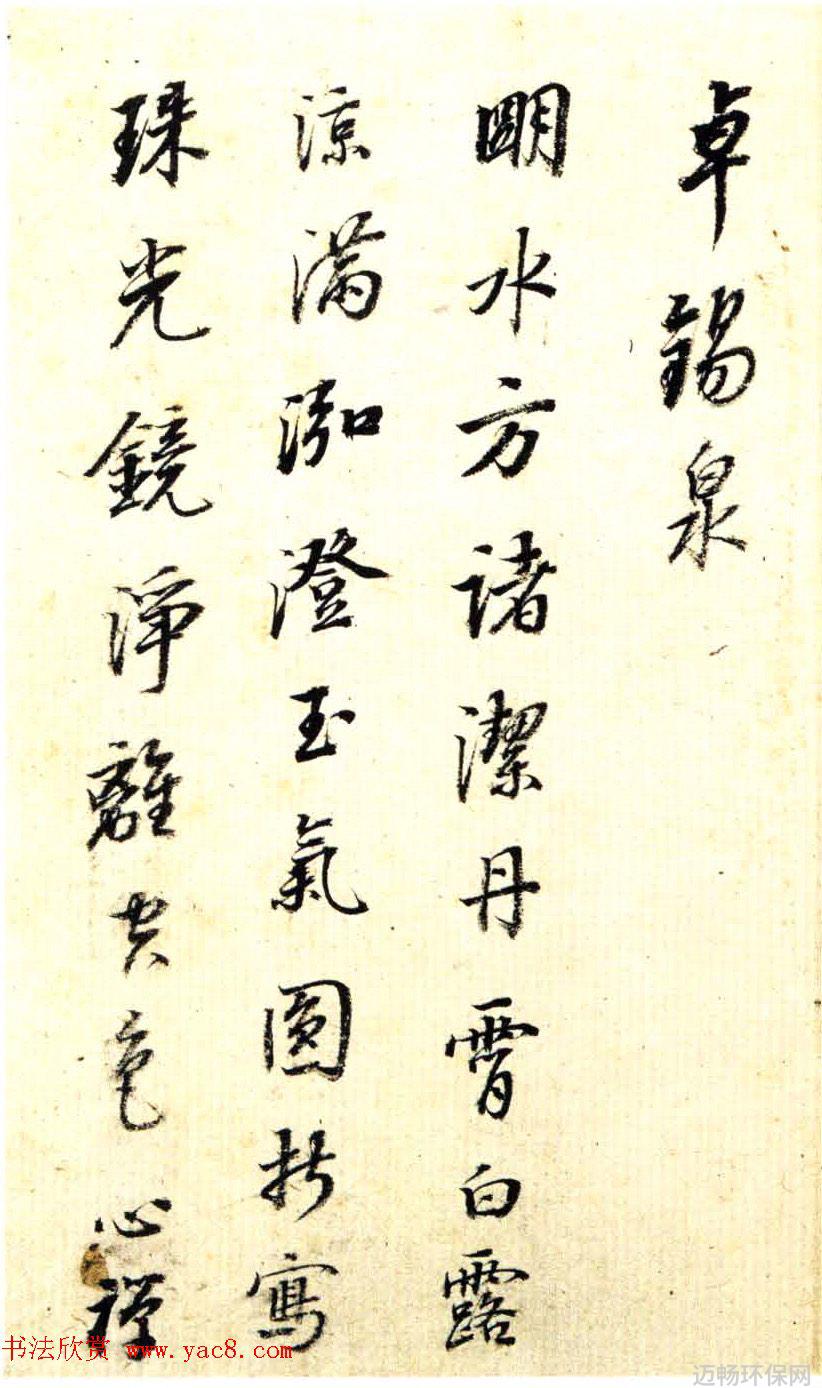 卓錫泉
明水方諸潔丹霄白露
涼滿泓澄玉氣圓折寫
珠光鏡淨離空色心禪
书法欣赏 www.yac8.com
迈畅环保网